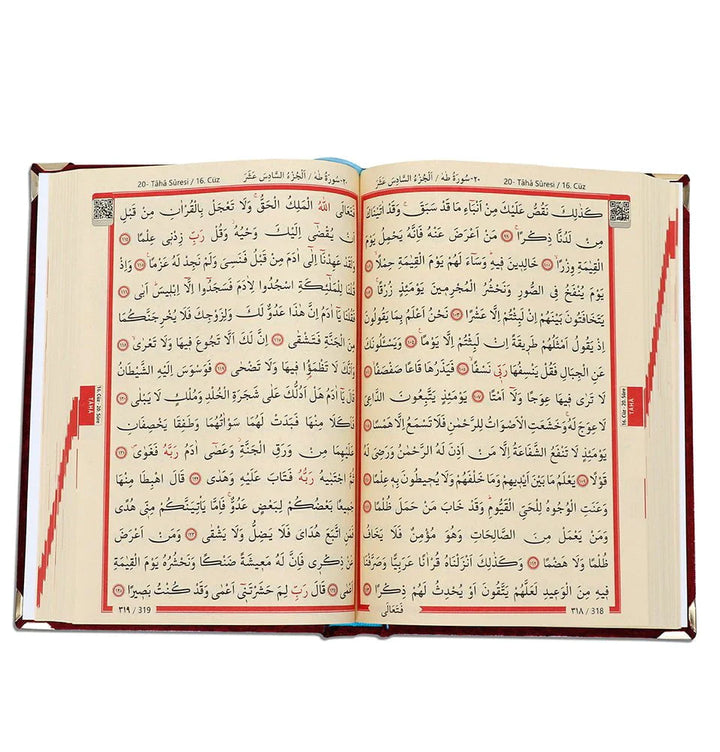 ٢٠- سُورَةُ طٰهٰ / اَلْجُزْءُ السَّادِسَ عَشَرَ
20- Tâhâ Sûresi / 16. Cüz
كَذٰلِكَ نَقُصُّ عَلَيْكَ مِنْ اَنْبَٓاءِ مَا قَدْ سَبَقَۚ وَقَدْ اٰتَيْنَاكَ
مِنْ لَدُنَّا ذِكْرًاۚ ﴿٩٩﴾ مَنْ اَعْرَضَ عَنْهُ فَاِنَّهُ يَحْمِلُ يَوْمَ
الْقِيٰمَةِ وِزْرًاۙ ﴿١٠٠﴾ خَالِدِينَ فِيهِۜ وَسَٓاءَ لَهُمْ يَوْمَ الْقِيٰمَةِ حِمْلًاۙ ﴿١٠١﴾
يَوْمَ يُنْفَخُ فِي الصُّورِ وَنَحْشُرُ الْمُجْرِمِينَ يَوْمَئِذٍ زُرْقًاۚ ﴿١٠٢﴾
يَتَخَافَتُونَ بَيْنَهُمْ اِنْ لَبِثْتُمْ اِلَّا عَشْرًا ﴿١٠٣﴾ نَحْنُ اَعْلَمُ بِمَا يَقُولُونَ
اِذْ يَقُولُ اَمْثَلُهُمْ طَرِيقَةً اِنْ لَبِثْتُمْ اِلَّا يَوْمًا۟ ﴿١٠٤﴾ وَيَسْـَٔلُونَكَ
عَنِ الْجِبَالِ فَقُلْ يَنْسِفُهَا رَبِّي نَسْفًاۙ ﴿١٠٥﴾ فَيَذَرُهَا قَاعًا صَفْصَفًاۙ ﴿١٠٦﴾
لَا تَرٰى فِيهَا عِوَجًا وَلَٓا اَمْتًاۜ ﴿١٠٧﴾ يَوْمَئِذٍ يَتَّبِعُونَ الدَّاعِيَ
لَا عِوَجَ لَهُۚ وَخَشَعَتِ الْاَصْوَاتُ لِلرَّحْمٰنِ فَلَا تَسْمَعُ اِلَّا هَمْسًا ﴿١٠٨﴾
يَوْمَئِذٍ لَا تَنْفَعُ الشَّفَاعَةُ اِلَّا مَنْ اَذِنَ لَهُ الرَّحْمٰنُ وَرَضِيَ لَهُ
قَوْلًا ﴿١٠٩﴾ يَعْلَمُ مَا بَيْنَ اَيْدِيهِمْ وَمَا خَلْفَهُمْ وَلَا يُحِيطُونَ بِهِ عِلْمًا ﴿١١٠﴾
وَعَنَتِ الْوُجُوهُ لِلْحَيِّ الْقَيُّومِۜ وَقَدْ خَابَ مَنْ حَمَلَ ظُلْمًا ﴿١١١﴾
وَمَنْ يَعْمَلْ مِنَ الصَّالِحَاتِ وَهُوَ مُؤْمِنٌ فَلَا يَخَافُ
ظُلْمًا وَلَا هَضْمًا ﴿١١٢﴾ وَكَذٰلِكَ اَنْزَلْنَاهُ قُرْاٰنًا عَرَبِيًّا وَصَرَّفْنَا
فِيهِ مِنَ الْوَعِيدِ لَعَلَّهُمْ يَتَّقُونَ اَوْ يُحْدِثُ لَهُمْ ذِكْرًا ﴿١١٣﴾
فَتَعَالَى
٣١٨ / 318
16. Cüz - 20. Sûre
TÂHÂ
٢٠- سُورَةُ طٰهٰ / اَلْجُزْءُ السَّادِسَ عَشَرَ
20- Tâhâ Sûresi / 16. Cüz
فَتَعَالَى اللّٰهُ الْمَلِكُ الْحَقُّۚ وَلَا تَعْجَلْ بِالْقُرْاٰنِ مِنْ قَبْلِ
اَنْ يُقْضٰٓى اِلَيْكَ وَحْيُهُۘ وَقُلْ رَبِّ زِدْنِي عِلْمًا ﴿١١٤﴾
وَلَقَدْ عَهِدْنَٓا اِلٰٓى اٰدَمَ مِنْ قَبْلُ فَنَسِيَ وَلَمْ نَجِدْ لَهُ عَزْمًا۟ ﴿١١٥﴾ وَاِذْ
قُلْنَا لِلْمَلٰٓئِكَةِ اسْجُدُوا لِاٰدَمَ فَسَجَدُٓوا اِلَّٓا اِبْلِيسَۜ اَبٰى ﴿١١٦﴾
فَقُلْنَا يَٓا اٰدَمُ اِنَّ هٰذَا عَدُوٌّ لَكَ وَلِزَوْجِكَ فَلَا يُخْرِجَنَّكُمَا
مِنَ الْجَنَّةِ فَتَشْقٰى ﴿١١٧﴾ اِنَّ لَكَ اَلَّا تَجُوعَ فِيهَا وَلَا تَعْرٰىۙ ﴿١١٨﴾
وَاَنَّكَ لَا تَظْمَؤُ۬ا فِيهَا وَلَا تَضْحٰى ﴿١١٩﴾ فَوَسْوَسَ اِلَيْهِ الشَّيْطَانُ
قَالَ يَٓا اٰدَمُ هَلْ اَدُلُّكَ عَلٰى شَجَرَةِ الْخُلْدِ وَمُلْكٍ لَا يَبْلٰى ﴿١٢٠﴾
فَاَكَلَا مِنْهَا فَبَدَتْ لَهُمَا سَوْاٰتُهُمَا وَطَفِقَا يَخْصِفَانِ
عَلَيْهِمَا مِنْ وَرَقِ الْجَنَّةِۘ وَعَصٰٓى اٰدَمُ رَبَّهُ فَغَوٰىۖ ﴿١٢١﴾
ثُمَّ اجْتَبٰيهُ رَبُّهُ فَتَابَ عَلَيْهِ وَهَدٰى ﴿١٢٢﴾ قَالَ اهْبِطَا مِنْهَا
جَمِيعًا بَعْضُكُمْ لِبَعْضٍ عَدُوٌّۚ فَاِمَّا يَأْتِيَنَّكُمْ مِنِّي هُدًى
فَمَنِ اتَّبَعَ هُدَايَ فَلَا يَضِلُّ وَلَا يَشْقٰى ﴿١٢٣﴾ وَمَنْ اَعْرَضَ
عَنْ ذِكْرِي فَاِنَّ لَهُ مَعِيشَةً ضَنْكًا وَنَحْشُرُهُ يَوْمَ الْقِيٰمَةِ
اَعْمٰى ﴿١٢٤﴾ قَالَ رَبِّ لِمَ حَشَرْتَنِٓي اَعْمٰى وَقَدْ كُنْتُ بَصِيرًا ﴿١٢٥﴾
٣١٩ / 319
16. Cüz - 20. Sûre
TÂHÂ